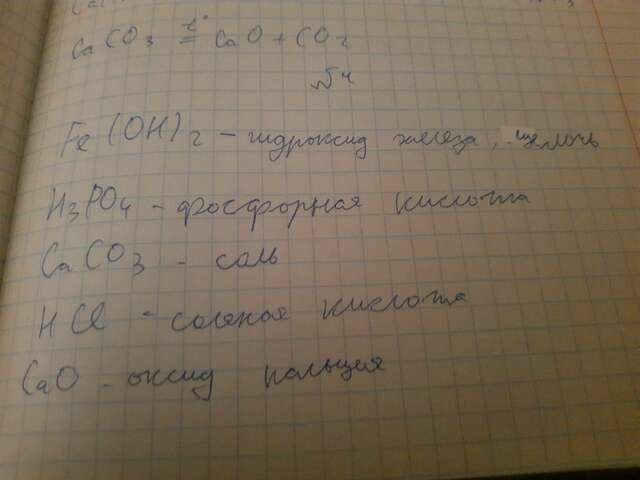 CaCO3 t°= CaO + CO2
№4
Fe(OH)2 – гидроксид железа, щелочь
H3PO4 – фосфорная кислота
CaCO3 – соль
HCl – соляная кислота
CaO – оксид кальция